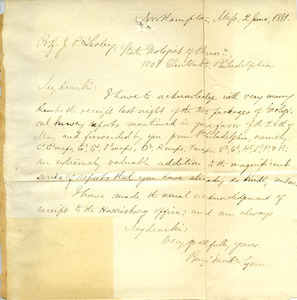 Northampton, Mass, 2 June, 1881.
Prof. J. P. Lesley,
State Geologist of Penn'a.
1008 Clinton St., Philadelphia
My dear Sir:
I have to acknowledge with very many
thanks the receipt last night of the two packages of Geolog-
ical Survey reports mentioned in your favor of the 26th of
May, and forwarded by you from Philadelphia, namely,
an extremely valuable addition to the magnificent
series of reports that you have already so kindly
I have made the usual acknowledgment of
receipt to the Harrisburg office; and am always
My dear Sir:
Very gratefully yours,
Benj. Smith Lyman.